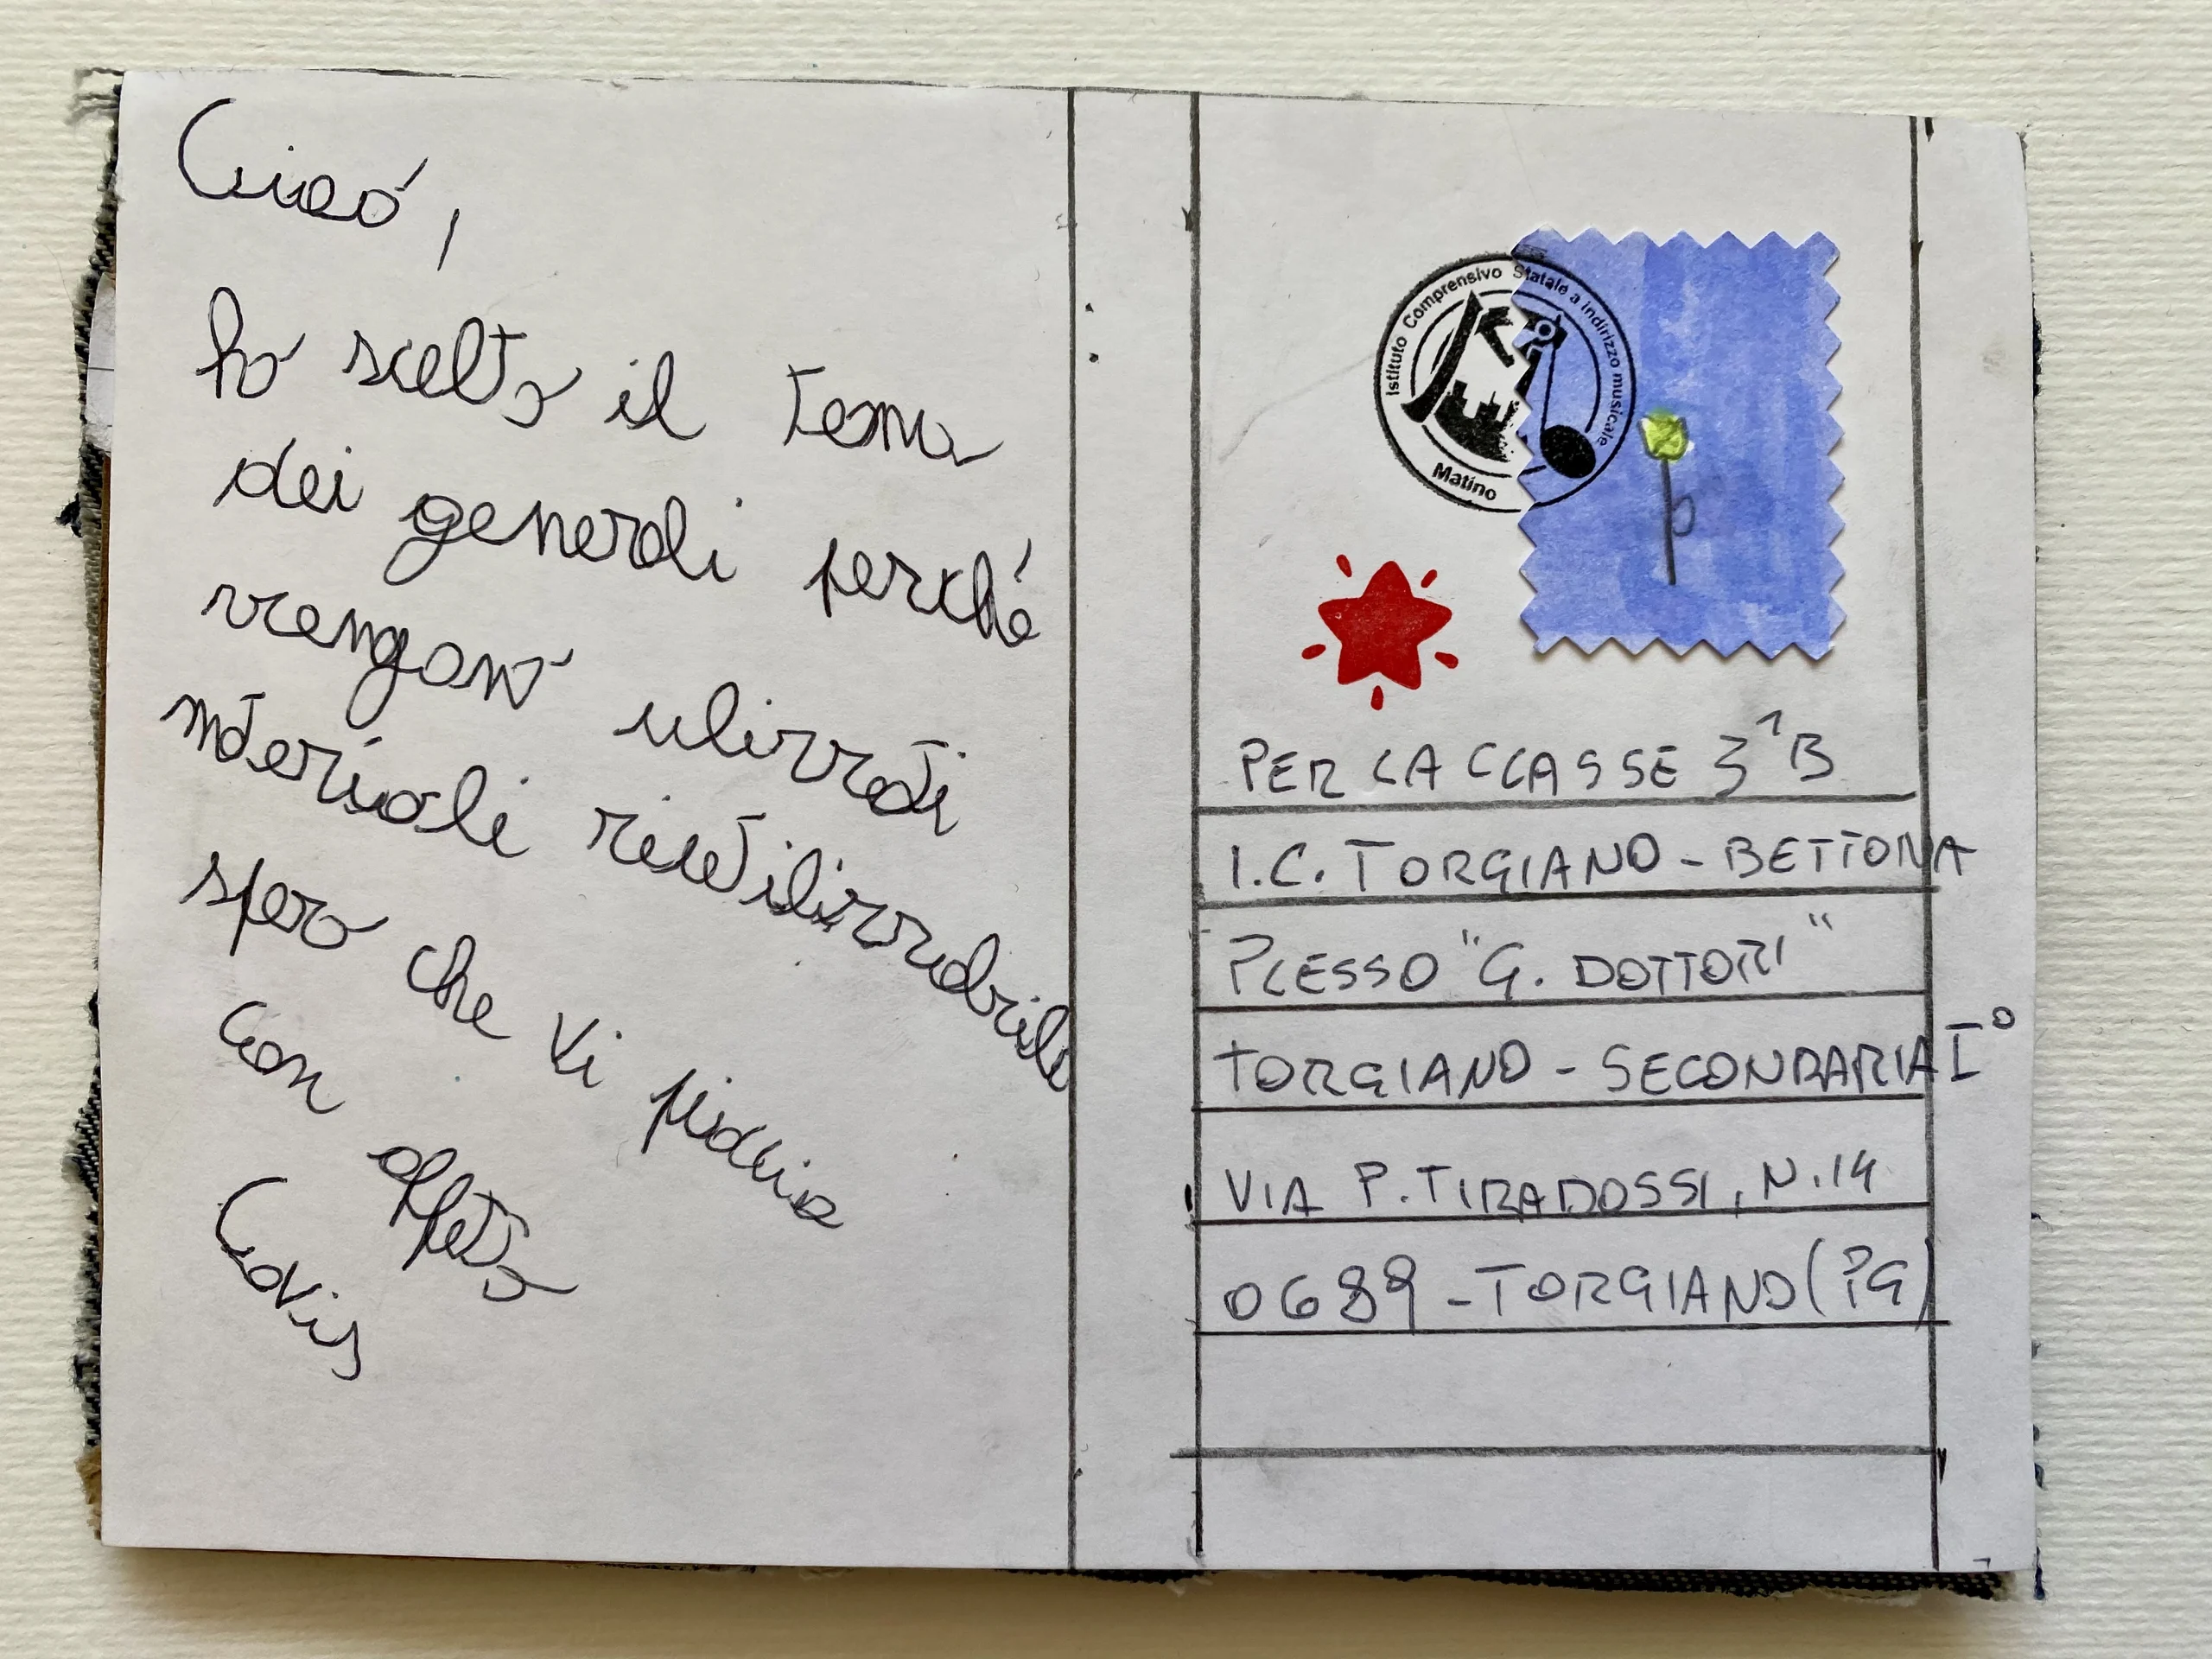 Ciao,
ho scelto il tema
dei generali perché
vengono ulizzati
materiali riutilizzabile
spero che vi piaccia
con affetto
Istituto Comprensivo Statale a indirizzo musicale
Matino
PER LA CLASSE 3ªB
I.C. TORGIANO - BETTONA
PLESSO "G. DOTTORI"
TORGIANO - SECONDARIA I°
VIA P. TIRADOSSI, N.14
0689 - TORGIANO (PG)